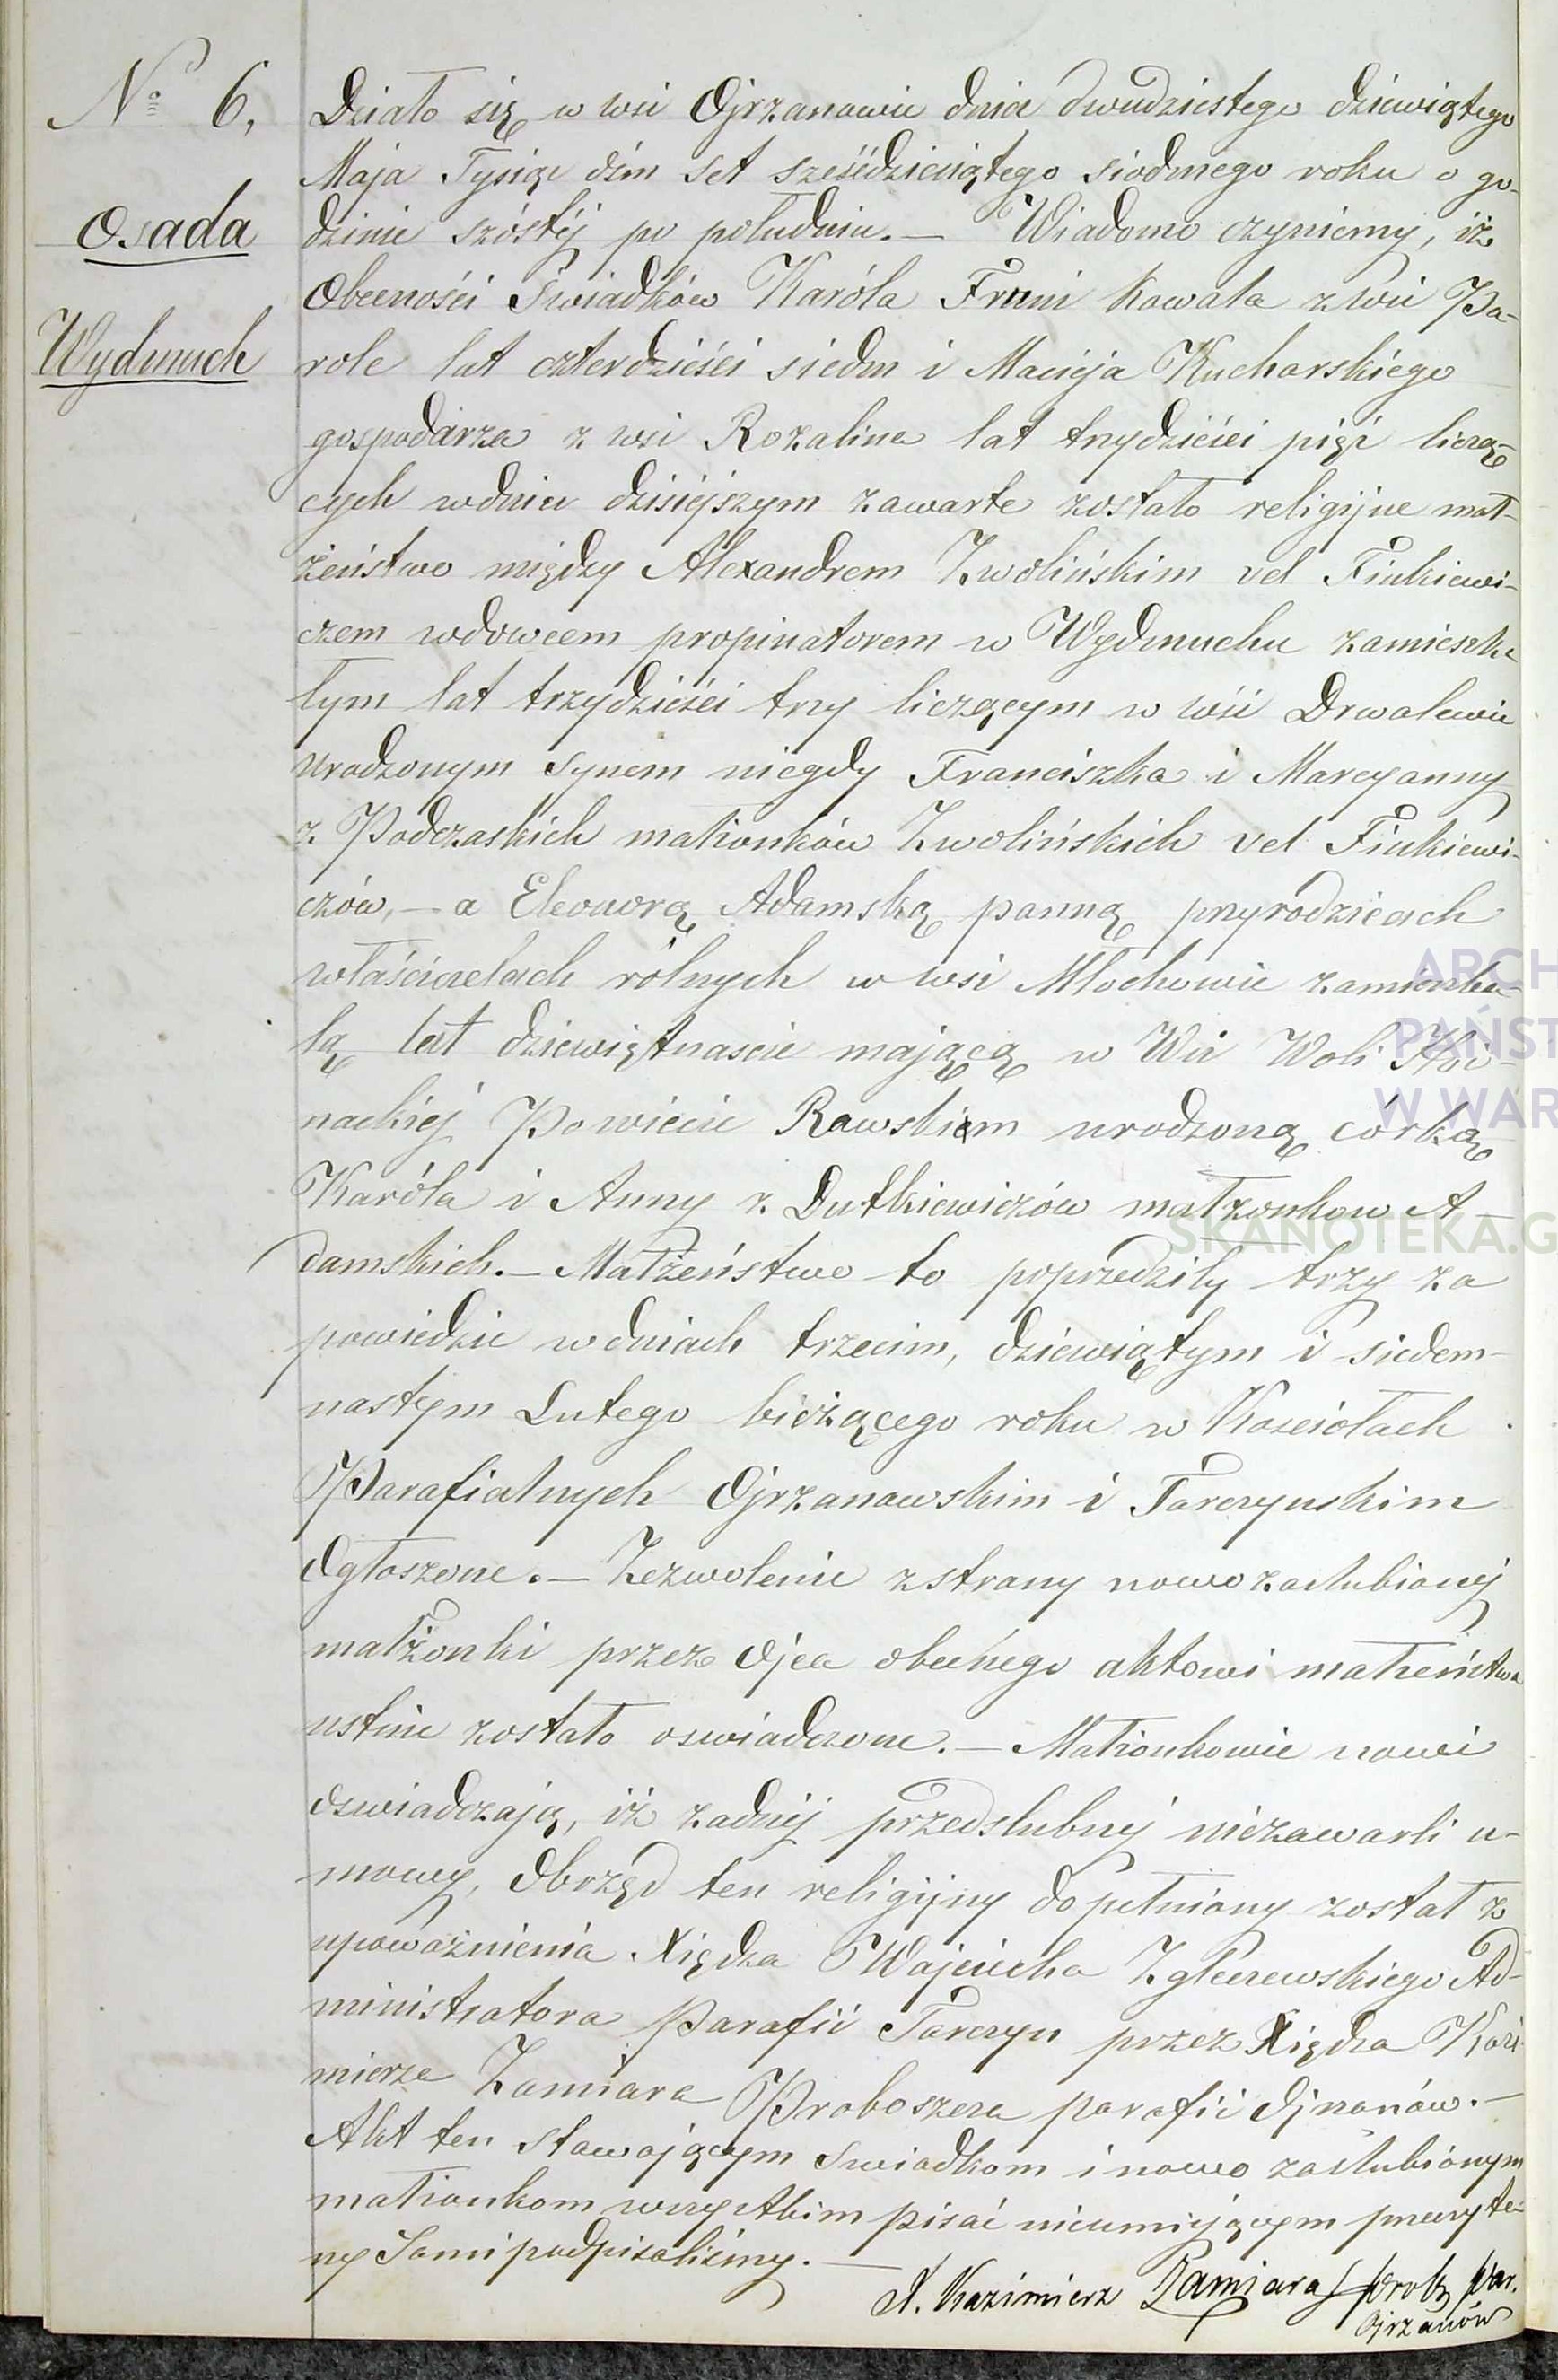 Nº 6,
Osada
Wydmuch
Działo się w wsi Ojrzanowie dnia dwudziestego dziewiątego
Maja Tysiąc ośm set sześćdziesiątego siodmego roku o go-
dzinie szóstéj po południu. — Wiadomo czyniemy, iż
Obecności Swiadków Karóla Kowala z wsi Pa-
role lat czterdzieści siedm i Macieja Kucharskiego
gospodarza z wsi Rozalina lat trzydzieści pięć liczą-
cych w dniu dzisiejszym zawarte zostało religijne mał-
żeństwo między Alexandrem Zwolińskim vel Finkiewi-
czem wdowcem propinatorem w Wydmuchu zamieszka
łym lat trzydzieści trzy liczącym w wsi Drwalewie
urodzonym synem niegdy Franciszka i Marcyanny
z Podczaskich małżonków Zwolińskich vel Finkiewi-
czów, — a Eleonorą Adamską panną przyrodzicach
właścicielach rólnych w wsi Młochowie zamieszka-
łą lat dziewiętnascie mającą w Wsi Woli
nackiej Powiecie Rawskiem urodzoną córką
Karóla i Anny z Dutkiewiczów małżonkow A-
damskich. — Małżeństwo to poprzedziły trzy za
powiedzie w dniach trzecim, dziewiątym i siedem-
nastym Lutego bieżącego roku w Kosciołach
Parafialnych Ojrzanowskim i Tarczynskim
Ogłoszone. — Zezwolenie z strony nowo zaslubionej
małżonki przez Ojca obecnego aktowi małżeństwa
ustnie zostało oswiadczone. — Małżonkowie nowi
oswiadczają, iż żadnéj przedslubnej niezawarli u-
mowy, Obrzęd ten religijny dopełniony został z
upoważnienia Xiędza Wojciecha Zgleczewskiego Ad-
ministratora Parafii Tarczyn przez Xiędza Kazi-
mierza Zamiara Proboszcza parafii Ojrzanów. —
Akt ten stawającym swiadkom i nowo zaslubionym
małżonkom wszystkim pisać nieumiejącym przeczyta-
ny Sami podpisaliśmy. —
X. Kazimierz Zamiara Prob. Par.
Ojrzanów
ARCH
PAŃST
W WAR
SKANOTEKA.G